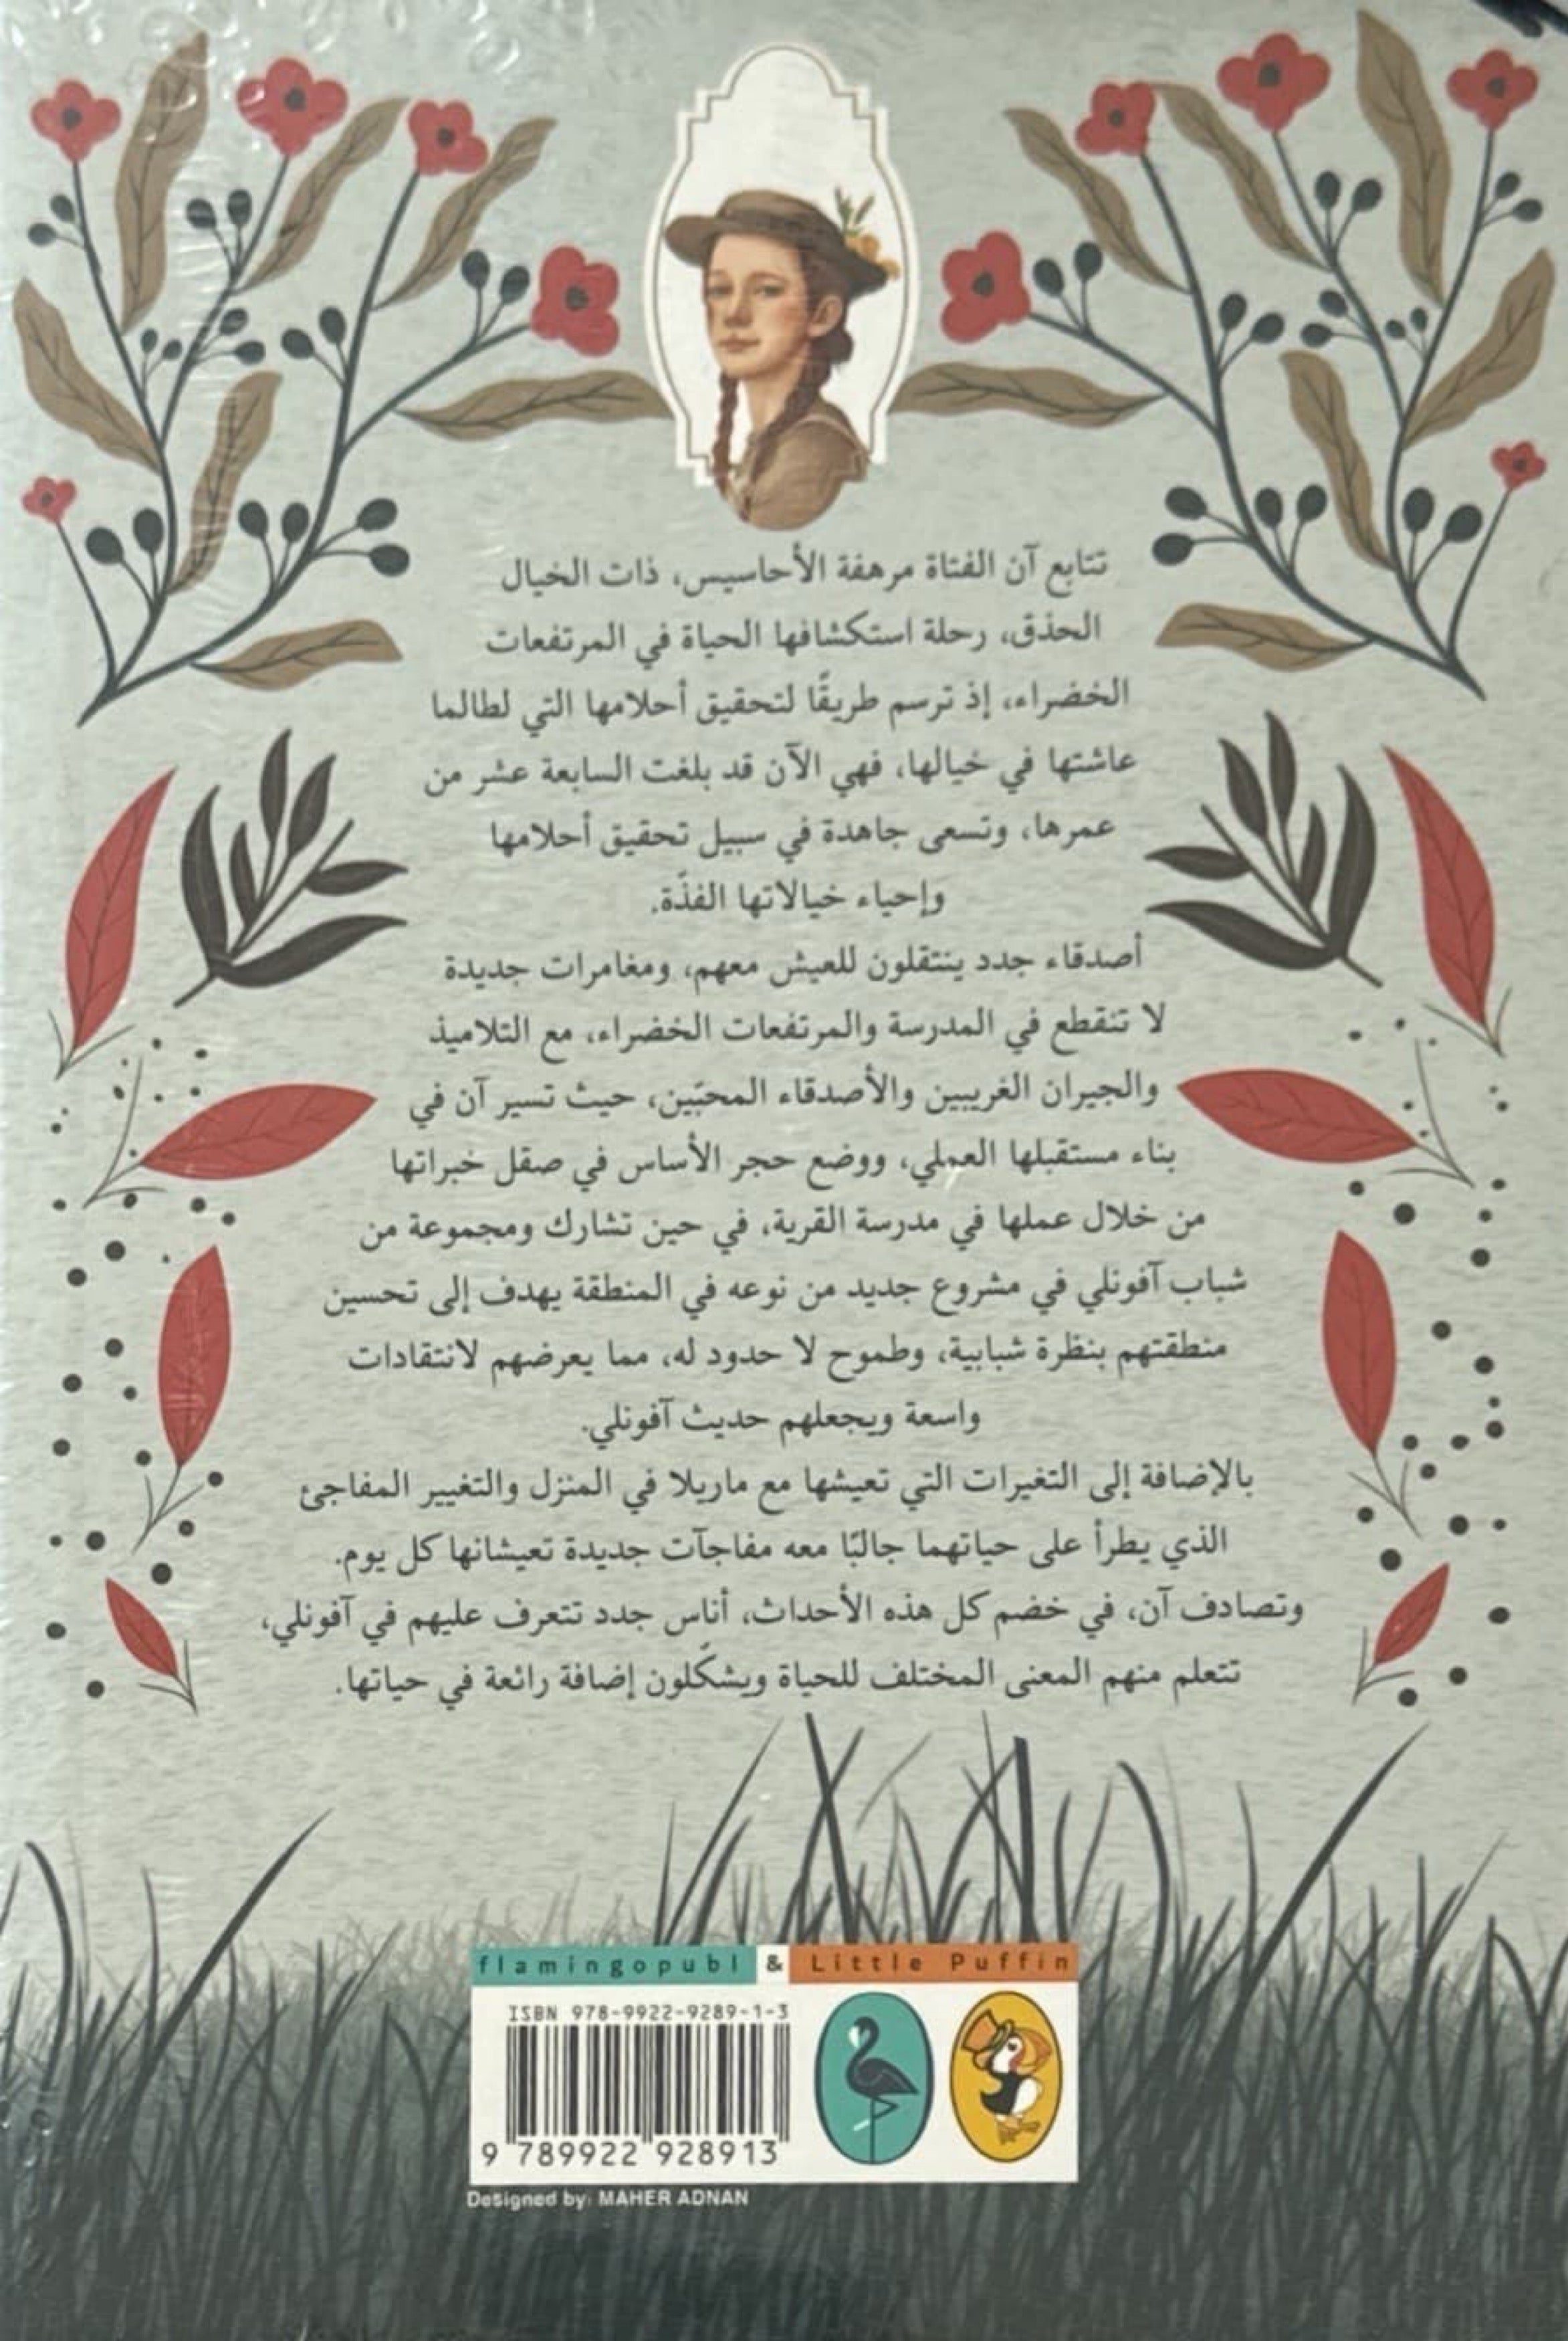 تتابع آن الفتاة مرهفة الأحاسيس، ذات الخيال
الحذق، رحلة استكشافها الحياة في المرتفعات
الخضراء، إذ ترسم طريقًا لتحقيق أحلامها التي لطالما
عاشتها في خيالها، فهي الآن قد بلغت السابعة عشر من
عمرها، وتسعى جاهدة في سبيل تحقيق أحلامها
وإحياء خيالاتها الفذّة.
أصدقاء جدد ينتقلون للعيش معهم، ومغامرات جديدة
لا تنقطع في المدرسة والمرتفعات الخضراء، مع التلاميذ
والجيران الغريبين والأصدقاء المحبّين، حيث تسير آن في
بناء مستقبلها العملي، ووضع حجر الأساس في صقل خبراتها
من خلال عملها في مدرسة القرية، في حين تشارك ومجموعة من
شباب آفونلي في مشروع جديد من نوعه في المنطقة يهدف إلى تحسين
منطقتهم بنظرة شبابية، وطموح لا حدود له، مما يعرضهم لانتقادات
واسعة ويجعلهم حديث آفونلي.
بالإضافة إلى التغيرات التي تعيشها مع ماريلا في المنزل والتغيير المفاجئ
الذي يطرأ على حياتهما جالبًا معه مفاجآت جديدة تعيشانها كل يوم.
وتصادف آن، في خضم كل هذه الأحداث، أناس جدد تتعرف عليهم في آفونلي،
تتعلم منهم المعنى المختلف للحياة ويشكّلون إضافة رائعة في حياتها.
flamingopubl & Little Puffin
ISBN 978-9922-9289-1-3
9 789922 928913
Designed by: MAHER ADNAN